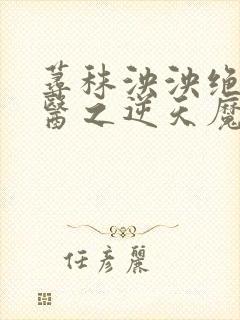 荨秣泱泱绝
醫之逆天魔
任彦麗